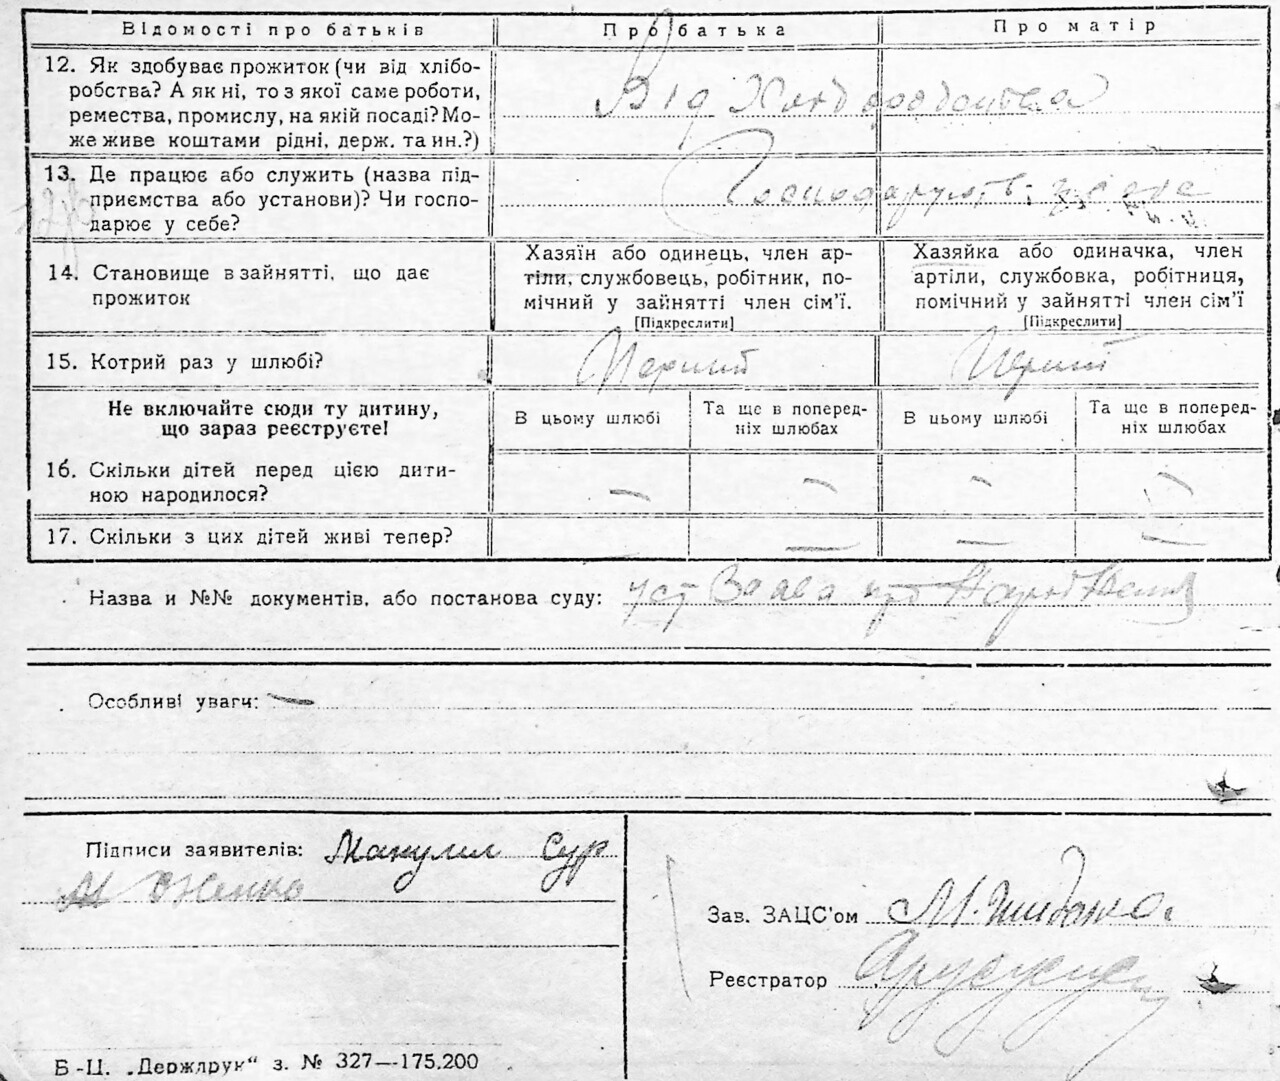 Відомості про батьків Про батька Про матір
12. Як здобуває прожиток (чи від хлібо-
робства? А як ні, то з якої саме роботи,
ремества, промислу, на якій посаді? Мо-
же живе коштами рідні, держ. та ин.?)
Від Хліборобства
13. Де працює або служить (назва під-
приємства або установи)? Чи госпо-
дарює у себе?
14. Становище в зайнятті, що дає
прожиток
Хазяїн або одинець, член ар-
тіли, службовець, робітник, по-
мічний у зайнятті член сім’ї.
[Підкреслити]
Хазяйка або одиначка, член
артіли, службовка, робітниця,
помічний у зайнятті член сім’ї
[Підкреслити]
15. Котрий раз у шлюбі? Перший Перший
Не включайте сюди ту дитину,
що зараз реєструєте!
В цьому шлюбі
Та ще в поперед-
ніх шлюбах
В цьому шлюбі
Та ще в поперед-
ніх шлюбах
16. Скільки дітей перед цією дити-
ною народилося? — — — —
17. Скільки з цих дітей живі тепер? — — —
Назва и №№ документів, або постанова суду: уст Заява про
Особливі уваги: —
Підписи заявителів:
Зав. ЗАЦС’ом
Реєстратор
Б-Ц. „Держдрук“ з. № 327—175.200